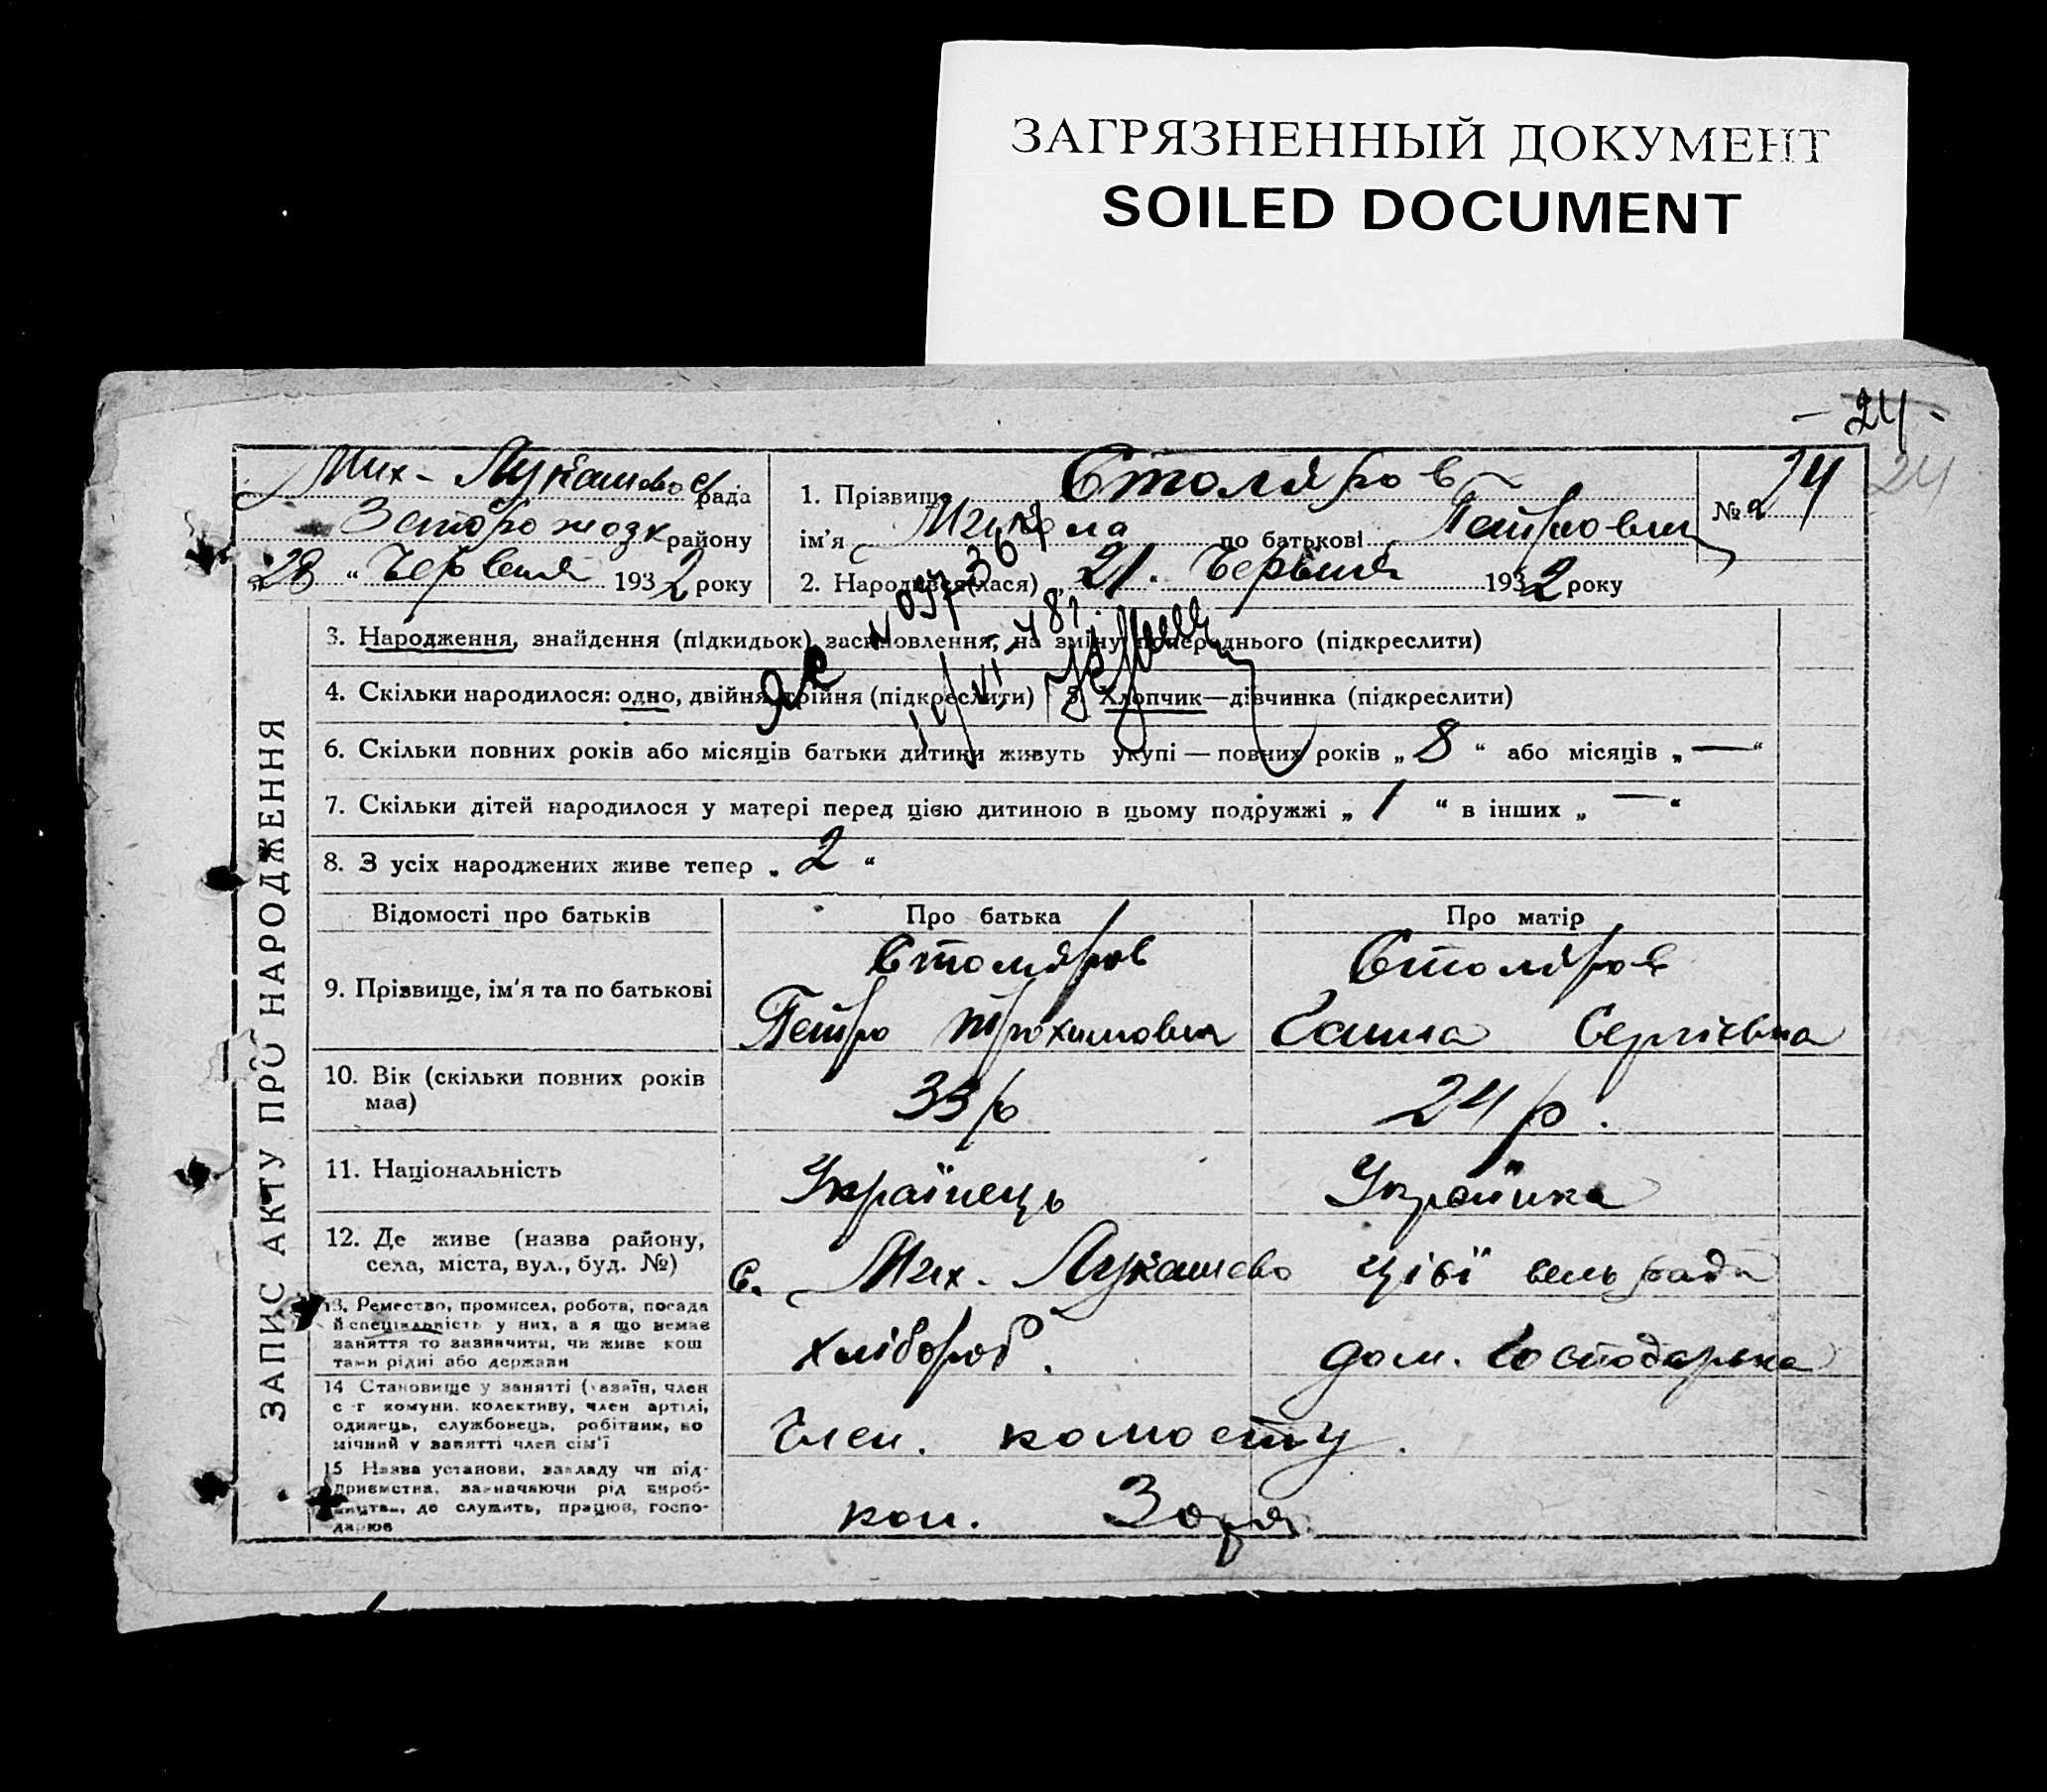 ЗАГРЯЗНЕННЫЙ ДОКУМЕНТ
SOILED DOCUMENT
- 24 -
24
Мих-Лукашевос рада
району
28 " Червеня 1932 року
1. Прізвище Столяров
ім'я Микола по батькові Петрович
№ 24
2. Народився(лася) 21. Червня 1932 року
ЗАПИС АКТУ ПРО НАРОДЖЕННЯ
3. Народження, знайдення (підкидьок), засиновлення, на зміну попереднього (підкреслити)
4. Скільки народилося: одно, двійня, трійня (підкреслити)
5. Хлопчик—дівчинка (підкреслити)
6. Скільки повних років або місяців батьки дитини живуть укупі — повних років „ 8 “ або місяців „ — “
7. Скільки дітей народилося у матері перед цією дитиною в цьому подружжі „ 1 “ в інших „ — “
8. З усіх народжених живе тепер „ 2 “
Відомості про батьків
Про батька
Про матір
9. Прізвище, ім'я та по батькові
Столяров
Петро Трохимович
Столяров
Ганна Сергієвна
10. Вік (скільки повних років має)
33 р
24 р.
11. Національність
Українець
Українка
12. Де живе (назва району,
села, міста, вул., буд. №)
с. Мих. Лукашево цієї сель рада
13. Ремество, промисел, робота, посада
й спеціяльність у них, а я що немає
заняття то зазначити, чи живе кош
тами рідні або держави
хлібороб.
дом. господарька
14 Становище у занятті (хазяїн, член
с-г комуни. колективу, член артілі,
одинець, службовець, робітник, по
мічний у занятті член сім'ї
Член. комосту.
15 Назва установи, закладу чи під-
приємства, зазначаючи рід вироб-
ництва, де служить, працює, госпо-
дарює
кол. Зоря